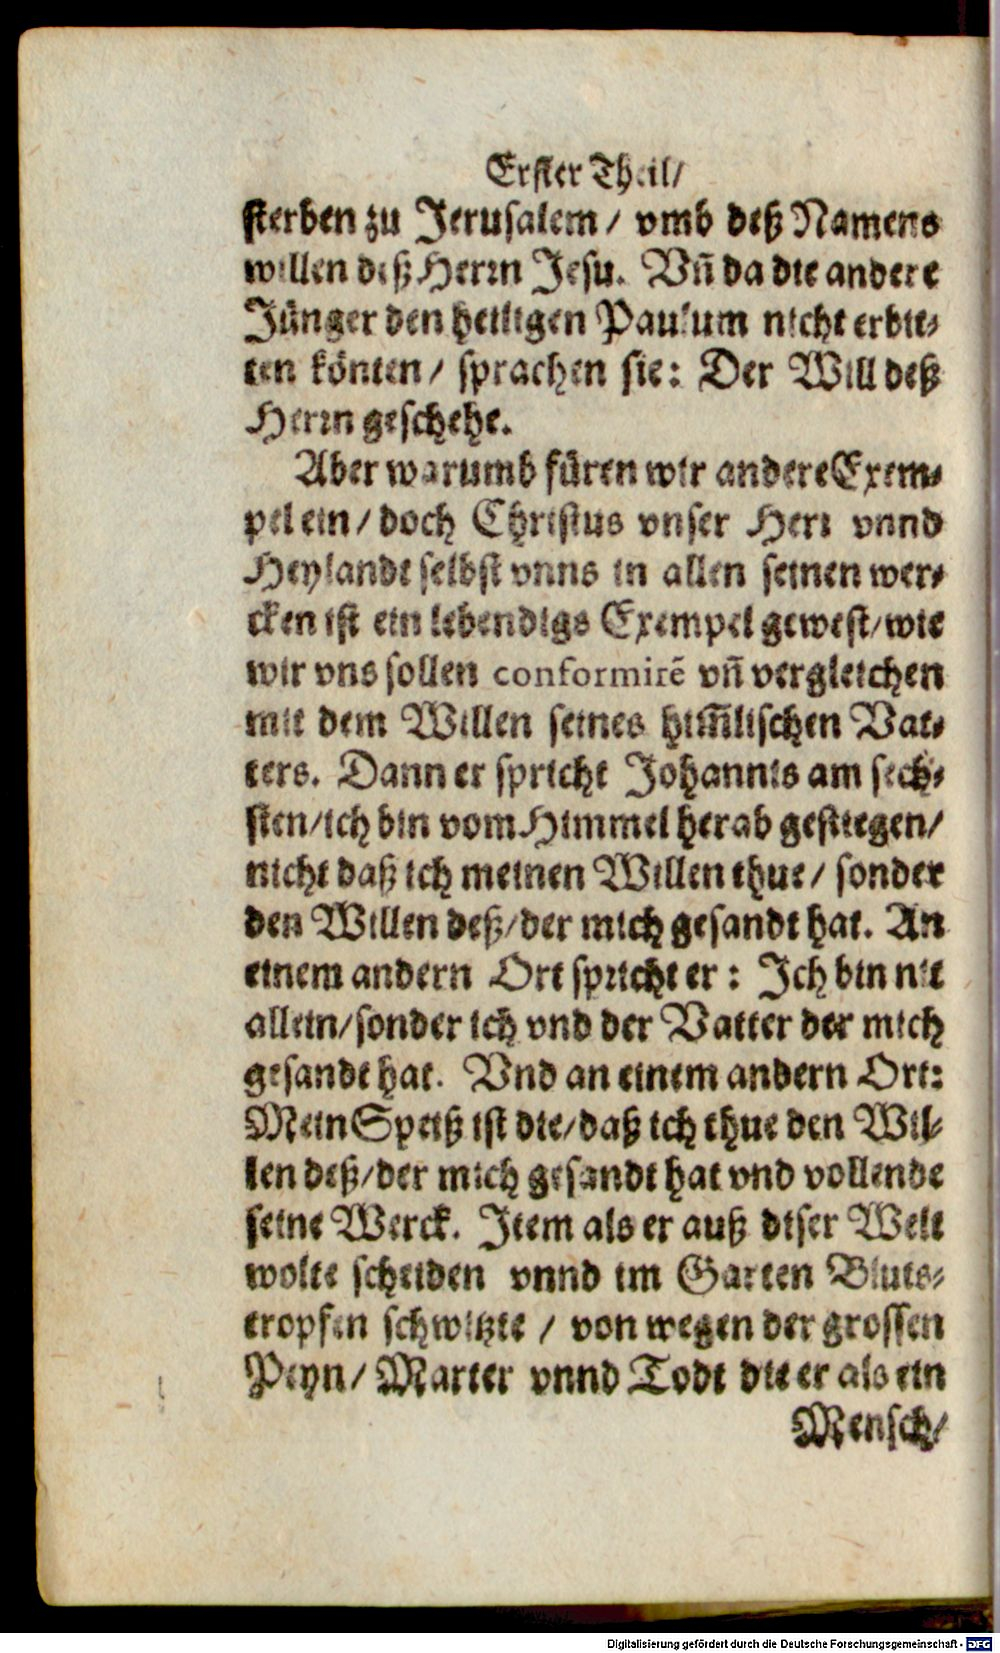 Erster Theil/
sterben zu Jerusalem / vmb deß Namens
willen deß Herrn Jesu. Vñ da die andere
Jünger den heiligen Paulum nicht erbit-
ten könten / sprachen sie: Der Will deß
Herrn geschehe.
Aber warumb füren wir andere Exem-
pel ein / doch Christus vnser Herr vnnd
Heylandt selbst vnns in allen seinen wer-
cken ist ein lebendigs Exempel gewest/wie
wir vns sollen conformirẽ vñ vergleichen
mit dem Willen seines him̃lischen Vat-
ters. Dann er spricht Johannis am sech-
sten/ich bin vom Himmel herab gestiegen/
nicht daß ich meinen Willen thue / sonder
den Willen deß/der mich gesandt hat. An
einem andern Ort spricht er : Ich bin nit
allein/sonder ich vnd der Vatter der mich
gesandt hat. Vnd an einem andern Ort:
Mein Speiß ist die/daß ich thue den Wil-
len deß/der mich gesandt hat vnd vollende
seine Werck. Item als er auß diser Welt
wolte scheiden vnnd im Garten Bluts-
tropfen schwitzte / von wegen der grossen
Peyn/ Marter vnnd Todt die er als ein
Mensch/
Digitalisierung gefördert durch die Deutsche Forschungsgemeinschaft - DFG